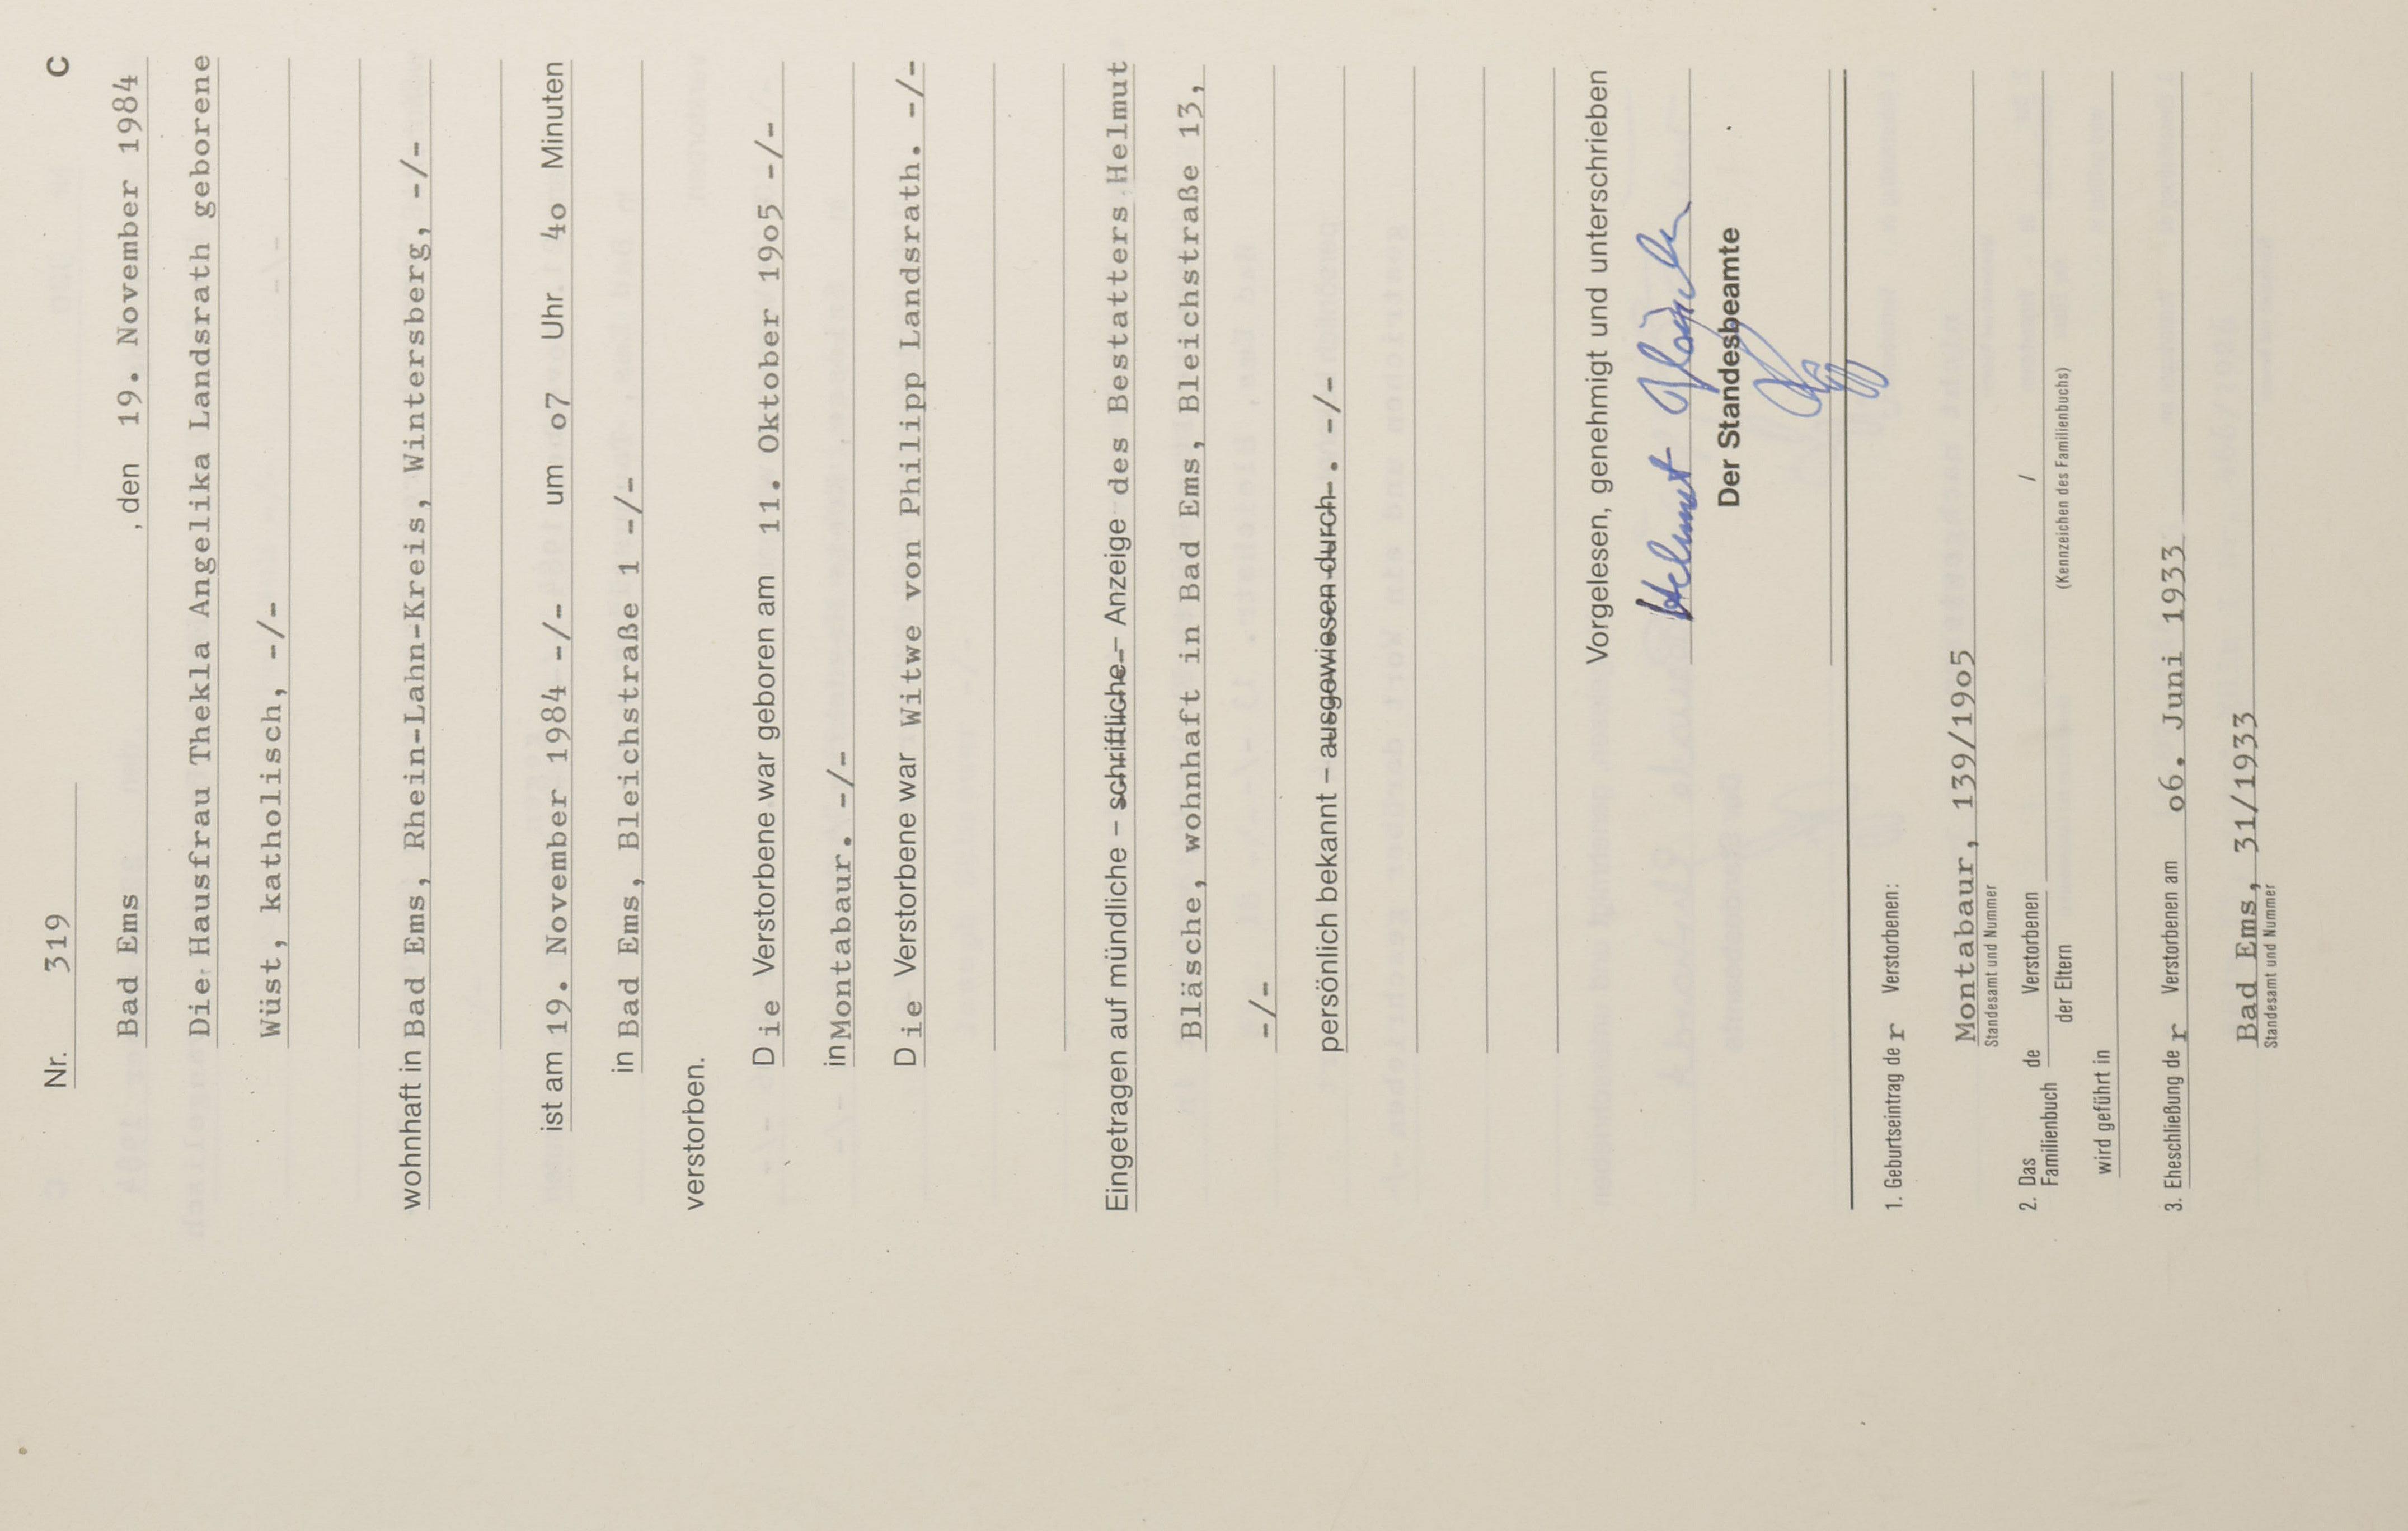 Nr. 319 C
Bad Ems, den 19. November 1984
Die Hausfrau Thekla Angelika Landsrath geborene
Wüst, katholisch, -/-
wohnhaft in Bad Ems, Rhein-Lahn-Kreis, Wintersberg, -/-
ist am 19. November 1984 -/- um o7 Uhr 4o Minuten
in Bad Ems, Bleichstraße 1 -/-
verstorben.
Die Verstorbene war geboren am 11. Oktober 19o5 -/-
in Montabaur. -/-
Die Verstorbene war Witwe von Philipp Landsrath. -/-
Eingetragen auf mündliche – schriftliche – Anzeige des Bestatters Helmut
Bläsche, wohnhaft in Bad Ems, Bleichstraße 13,
-/-
persönlich bekannt – ausgewiesen durch . -/-
Vorgelesen, genehmigt und unterschrieben
Helmut Bläsche
Der Standesbeamte
1. Geburtseintrag der Verstorbenen:
Montabaur, 139/19o5
Standesamt und Nummer
2. Das Familienbuch de Verstorbenen der Eltern /
(Kennzeichen des Familienbuchs)
wird geführt in
3. Eheschließung der Verstorbenen am o6. Juni 1933
Bad Ems, 31/1933
Standesamt und Nummer